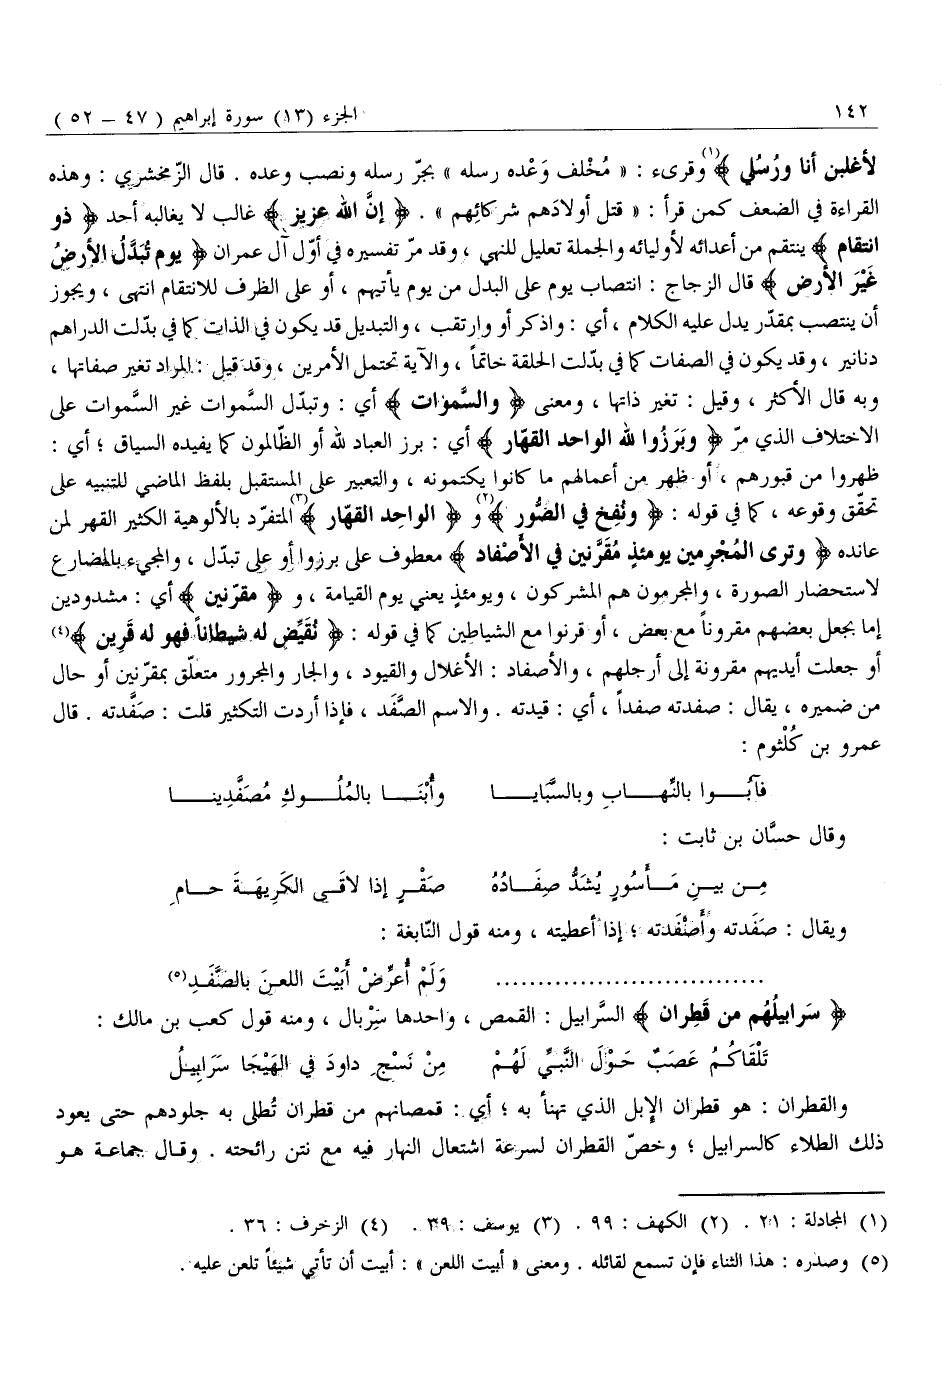 ١٤٢ الجزء (١٣) سورة إبراهيم ( ٤٧ – ٥٢ )
لأغلبن أنا ورُسُلي ﴾(١) وقرىء : « مُخْلف وَعْده رسله » بجرّ رسله ونصب وعده . قال الزّمخشري : وهذه
القراءة في الضعف كمن قرأ : « قتل أولادَهم شركائِهم » . ﴿ إنَّ الله عزيز ﴾ غالب لا يغالبه أحد ﴿ ذو
انتقام ﴾ ينتقم من أعدائه لأوليائه والجملة تعليل للنهي ، وقد مرّ تفسيره في أوّل آل عمران ﴿ يوم تُبَدَّلُ الأرضُ
غَيْرَ الأرض ﴾ قال الزجاج : انتصاب يوم على البدل من يوم يأتيهم ، أو على الظرف للانتقام انتهى ، ويجوز
أن ينتصب بمقدّر يدل عليه الكلام ، أي : واذكر أو وارتقب ، والتبديل قد يكون في الذات كما في بدّلت الدراهم
دنانير ، وقد يكون في الصفات كما في بدّلت الحلقة خاتماً ، والآية تحتمل الأمرين ، وقد قيل : المراد تغير صفاتها ،
وبه قال الأكثر ، وقيل : تغير ذاتها ، ومعنى ﴿ والسَّموٰات ﴾ أي : وتبدّل السَّموات غير السَّموات على
الاختلاف الذي مرّ ﴿ وبَرَزُوا لله الواحد القهّار ﴾ أي : برز العباد لله أو الظّالمون كما يفيده السياق ؛ أي :
ظهروا من قبورهم ، أو ظهر من أعمالهم ما كانوا يكتمونه ، والتعبير على المستقبل بلفظ الماضي للتنبيه على
تحقّق وقوعه ، كما في قوله : ﴿ ونُفِخ في الصُّور ﴾(٢) و ﴿ الواحِد القهّار ﴾(٣) المتفرّد بالألوهية الكثير القهر لمن
عانده ﴿ وترى المُجْرمين يومئذٍ مُقَرَّنين في الأصْفاد ﴾ معطوف على برزوا أو على تبدّل ، والمجيء بالمضارع
لاستحضار الصورة ، والمجرمون هم المشركون ، ويومئذٍ يعني يوم القيامة ، و ﴿ مقرّنين ﴾ أي : مشدودين
إما بجعل بعضهم مقروناً مع بعض ، أو قرنوا مع الشياطين كما في قوله : ﴿ نُقَيِّض له شيطاناً فهو له قَرِين ﴾(٤)
أو جعلت أيديهم مقرونة إلى أرجلهم ، والأصفاد : الأغلال والقيود ، والجار والمجرور متعلّق بمقرّنين أو حال
من ضميره ، يقال : صفدته صفداً ، أي : قيدته . والاسم الصَّفَد ، فإذا أردت التكثير قلت : صَفَّدته . قال
عمرو بن كُلْثوم :
فآبُــوا بالنِّهــاب وبالسَّبَايــا وأُبْنَــا بالمُلُــوكِ مُصَفَّدِينــا
وقال حسَّان بن ثابت :
مِــن بيــنِ مَــأسُورٍ يُشَدُّ صِفَــادُهُ صَقْــرٍ إذا لاقَــى الكَرِيهَــةَ حَــامِ
ويقال : صَفَدته وأَصْفَدته ؛ إذا أعطيته ، ومنه قول النّابغة :
.............................. وَلَمْ أُعرِّضْ أَبَيْتَ اللعنَ بالصَّفَدِ(٥)
﴿ سَرابيلُهُم من قَطِران ﴾ السَّرابيل : القمص ، واحدها سِرْبال ، ومنه قول كعب بن مالك :
تَلْقَاكُــمُ عَصَبٌ حَــوْلَ النَّبيِّ لَهُــمْ مِنْ نَسْجِ داودَ في الهَيْجَا سَرَابِيــلُ
والقطران : هو قطران الإبل الذي تهنأ به ؛ أي : قمصانهم من قطران تُطلى به جلودهم حتى يعود
ذلك الطلاء كالسرابيل ؛ وخصّ القطران لسرعة اشتعال النار فيه مع نتن رائحته . وقال جماعة هو
(١) المجادلة : ٢١ . (٢) الكهف : ٩٩ . (٣) يوسف : ٣٩ . (٤) الزخرف : ٣٦ .
(٥) وصدره : هذا الثناء فإن تسمع لقائله . ومعنى « أبيت اللعن » : أبيت أن تأتي شيئاً تلعن عليه .